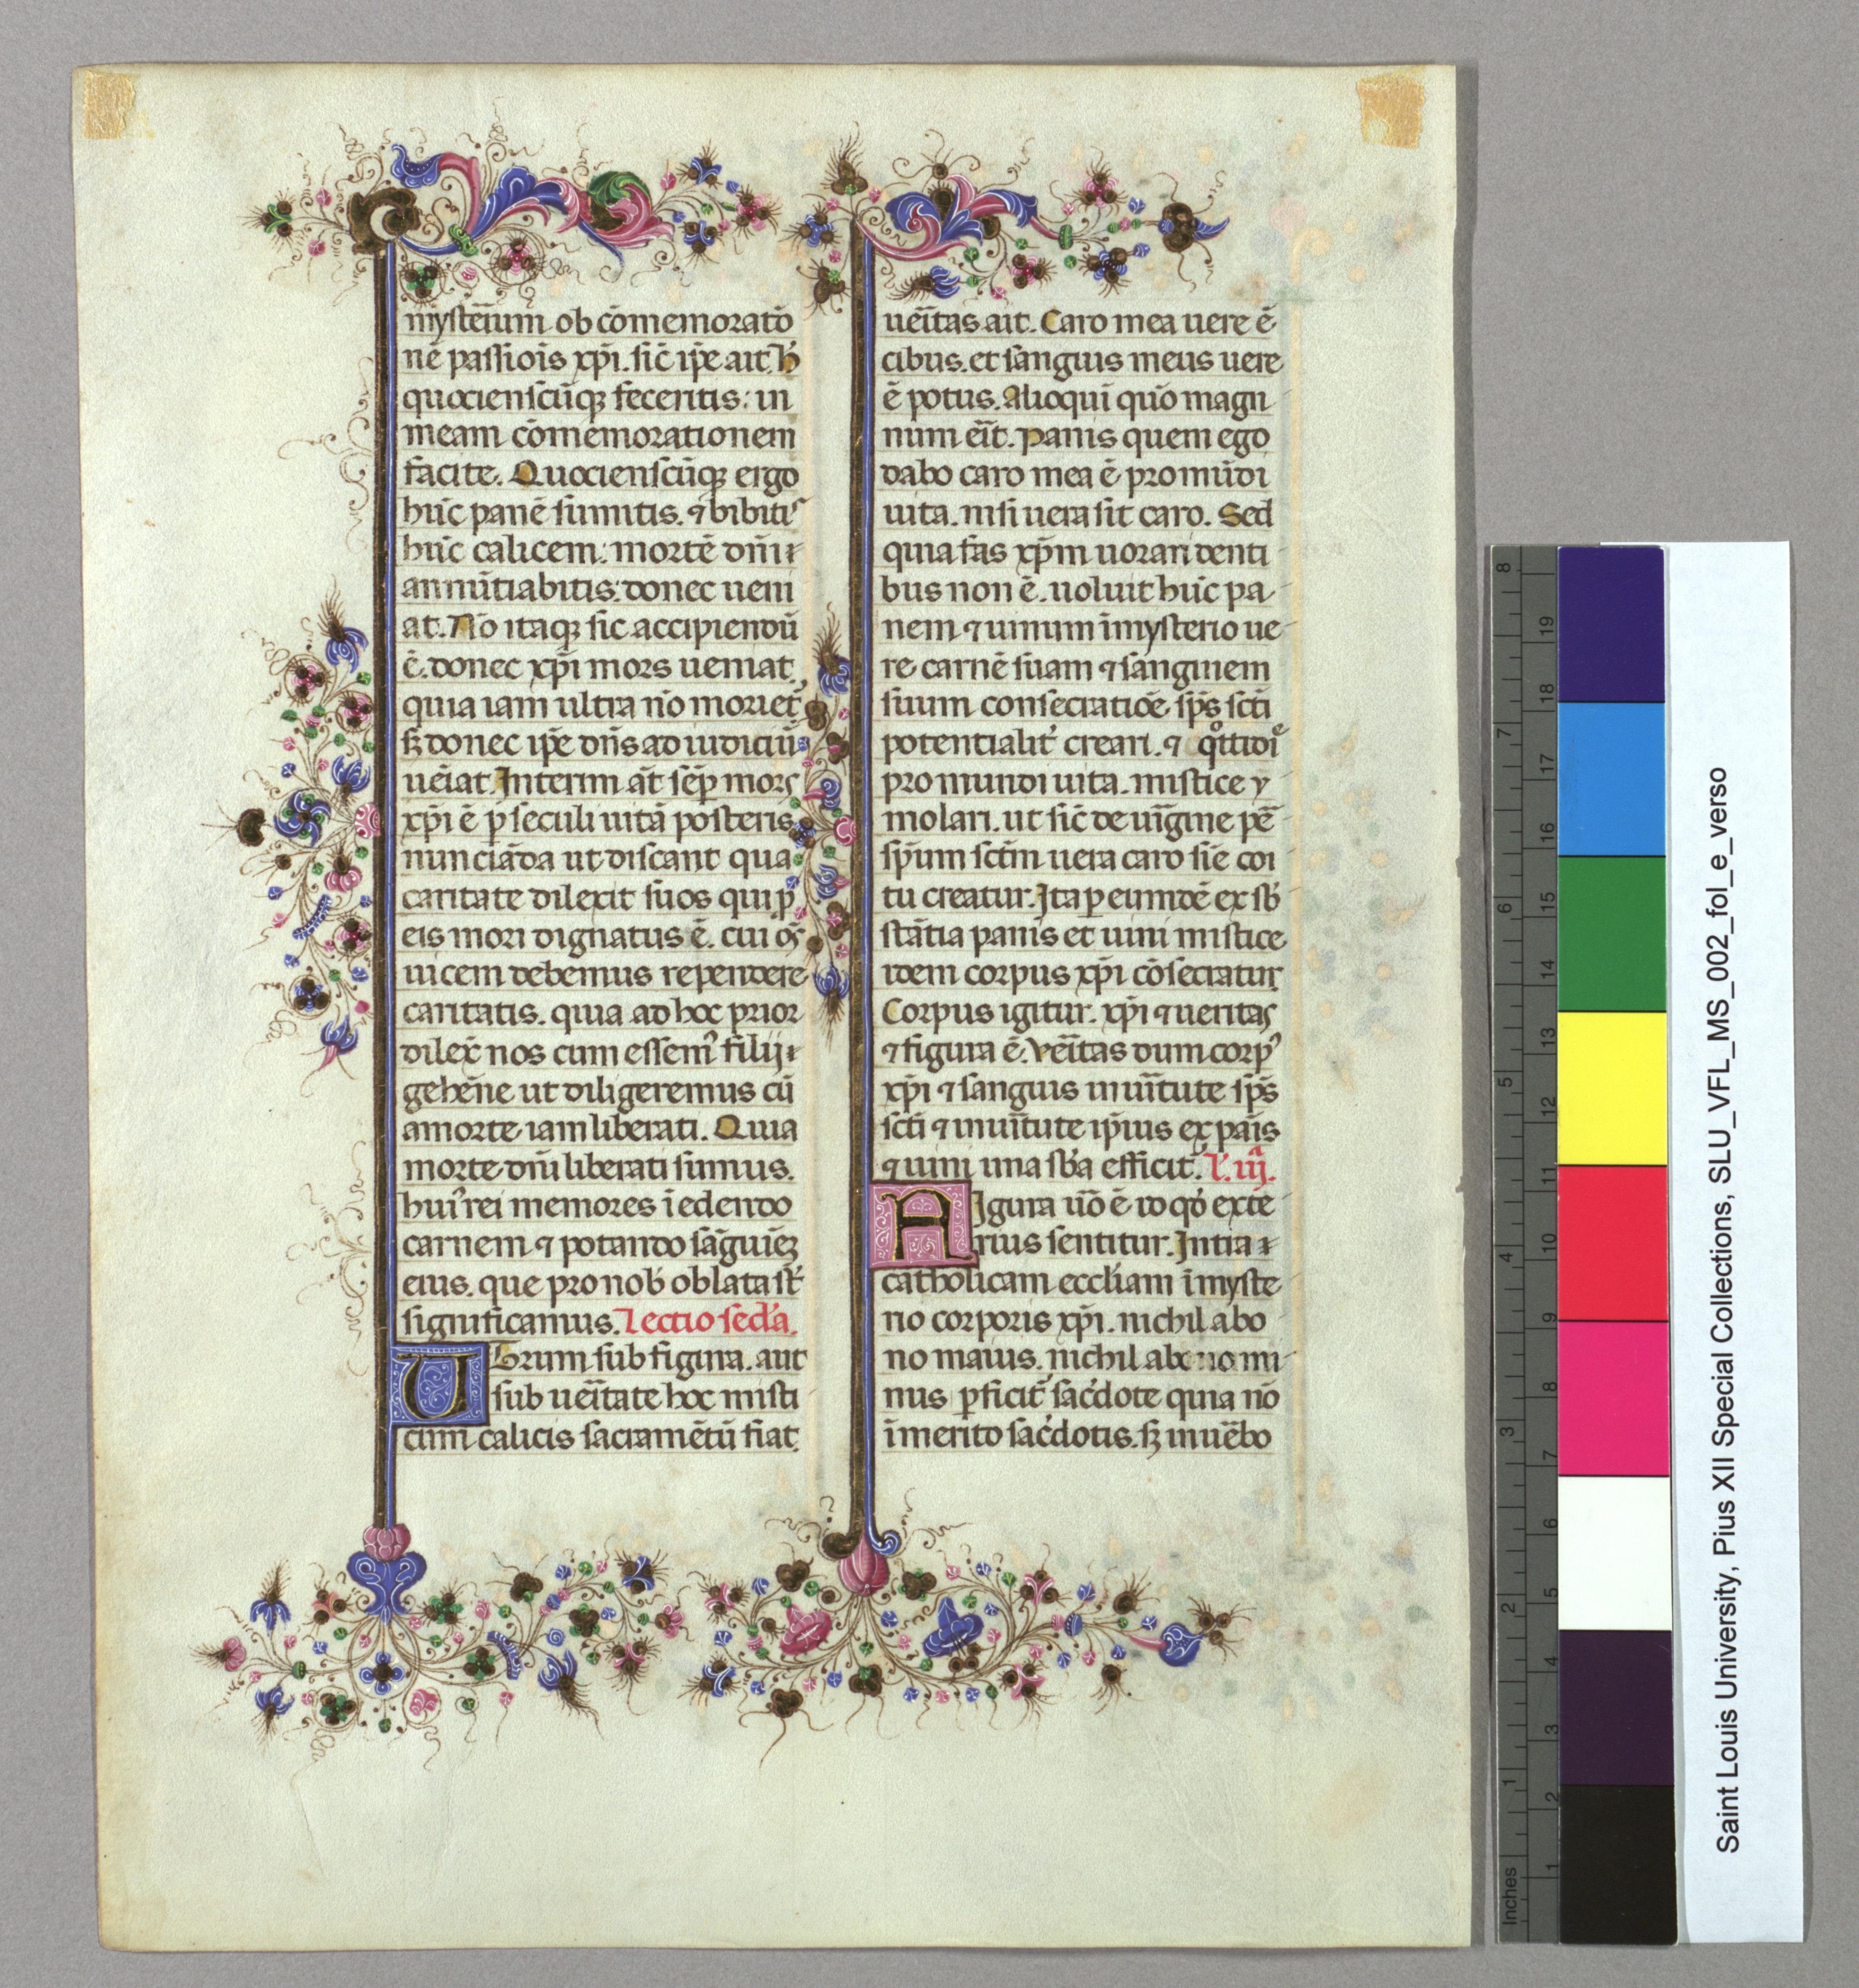 mysteriũm ob cõmemorato
nẽ passiõis xp̃i. sic̃ ip̃e ait. h̃
quociensciũq; feceritis: in
meam cõmemorationem
facite. Quociensciũq; ergo
hũc panẽ sumitis. ⁊ bibitis
hũc calicem: mortẽ dñi
annũtiabitis: donec ueni
at. Nõ itaq; sic accipiendũ
ẽ. donec xp̃i mors ueniat,
quia iam ultra nõ moriet᷑
sꝫ donec ip̃e dñs ad iudiciũ
uẽiat. Interim aũt sẽp mors
xp̃i ẽ p seculi uitã posteris
nunciãda ut discant qua
caritate dilexit suos qui p
eis mori dignatus ẽ. cui oẽs
uicem debemus rependere
caritatis. quia ad hoc prior
dilex̃ nos cum essem᷒ filij
gehẽne ut diligeremus cũ
amorte iam liberati. Quia
morte dñi liberati sumus.
hui᷒ rei memores ĩ edendo
carnem ⁊ potando sãguiẽꝫ
eius. que pro nob̃ oblata st̃
significamus. Lectio sec̃da.
Utrum sub figura. aut
sub ueĩtate hoc misti
cum calicis sacramẽtũ fiat.
ueĩtas ait. Caro mea uere ẽ
cibus. et sanguis meus uere
ẽ potus. Alioqui quõ magn
num eĩt. Panis quem ego
dabo caro mea ẽ pro mũdi
uita. nisi uera sit caro. Sed
quia fas xp̃m uorari denti
bus non ẽ. uoluit hũc pa
nem ⁊ uinum ĩ mysterio ue
re carnẽ suam ⁊ sanguinem
suum consecratiõe sp̃s sc̃ti
potentialit̾ creari. ⁊ qͦttidie
pro mundi uita. mistice y
molari. ut sic̃ de uĩgine pẽ
sp̃um sc̃tm uera caro siẽ coi
tu creatur. Ita p eumdẽ ex sb̾
stãtia panis et uini mistice
idem corpus xp̃i cõsecratur
Corpus igitur. xp̃i ⁊ ueritas
⁊ figura ẽ. Veĩtas dum corp᷒
xp̃i ⁊ sanguis in uĩtute sp̃s
sc̃ti ⁊ in uĩtute ip̃ius ex pãis
⁊ uini una sb̾a efficit᷑. L̃. iij̃.
AIgura ũo ẽ id qd̾ exte
rius sentitur. Intra
catholicam eccl̃iam ĩ myste
rio corporis xp̃i. nichil abo
no maius. nichil abo no mi
nus p̱ficit᷑ sac̾dote quia nõ
ĩ merito sac̾dotis. sꝫ in uẽbo
Saint Louis University, Pius XII Special Collections, SLU_VFL_MS_002_fol_e_verso
8
7
6
5
4
3
2
1
Inches
19
18
17
16
15
14
13
12
11
10
9
8
7
6
5
4
3
2
1